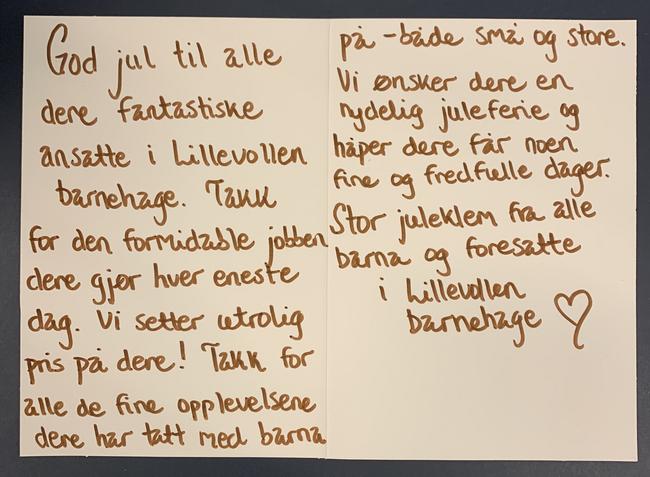 God jul til alle
dere fantastiske
ansatte i Lillevollen
barnehage. Takk
for den formidable jobben
dere gjør hver eneste
dag. Vi setter utrolig
pris på dere! Takk for
alle de fine opplevelsene
dere har tatt med barna
på - både små og store.
Vi ønsker dere en
nydelig juleferie og
håper dere får noen
fine og fredfulle dager.
Stor juleklem fra alle
barna og foresatte
i Lillevollen
barnehage ♡